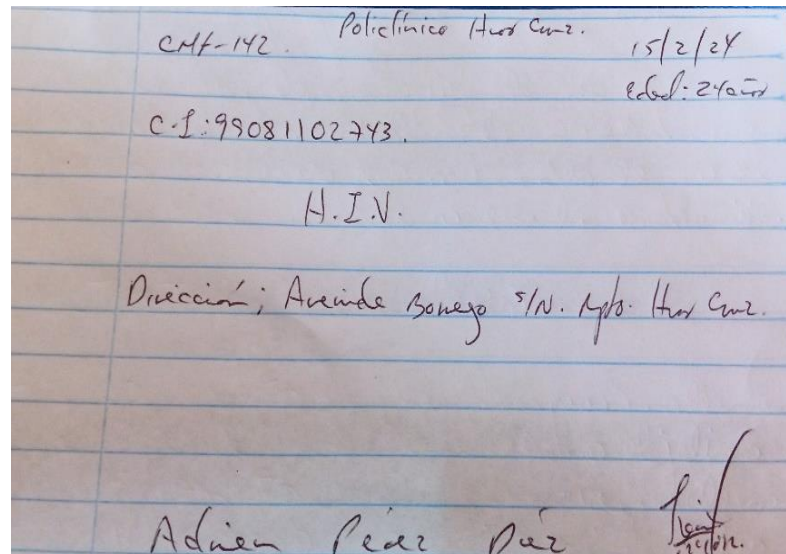 CMF-142. Policlínico Hnos Cruz. 15/2/24
Edad: 24 años
C.I: 99081102743.
H.I.V.
Dirección; Avenida Borrego s/N. Rpto. Hnos Cruz.
Adrian Pérez Díaz